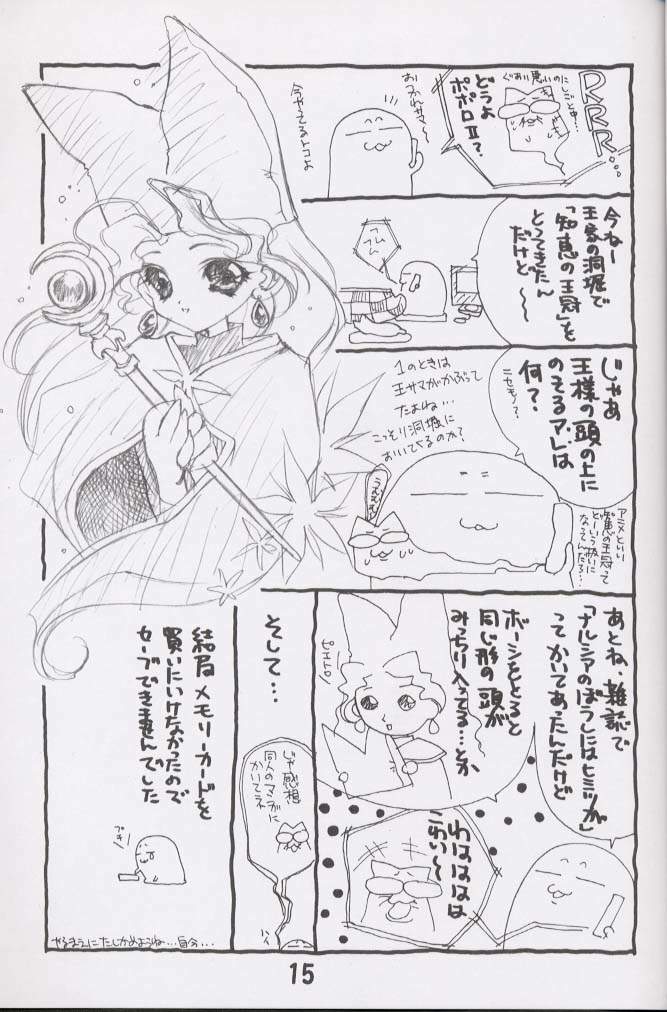 RRR…
ぐあい悪いのにしごと中…
どうよ
ポポロⅡ?
おつかれサマ～
今やってるトコよ
今ねー
王家の洞堀で
「知恵の王冠」を
とってきたん
だけど～～
じゃあ
王様の頭の上に
のってるアレは
何?
ニセモノ?
1のときは
王サマがかぶって
たよね…
こっそり洞堀に
おいてくるのか?
うむむむ
アニメといい
知恵の王冠って
どーいう扱いに
なってんだろ…
あとね、雑誌で
「ナルシアのぼうしにはヒミツが」
ってかいてあったんだけど
ボーシをとると
同じ形の頭が
みっちり入ってる…とか
ピエトロ
わはははは
こわい～
そして…
じゃ感想
同人のマンガに
かいてネ
ハイ
結局メモリーカードを
買いにいけなかったので
セーブできませんでした
プキー
やるまえにたしかめようね…自分…
15